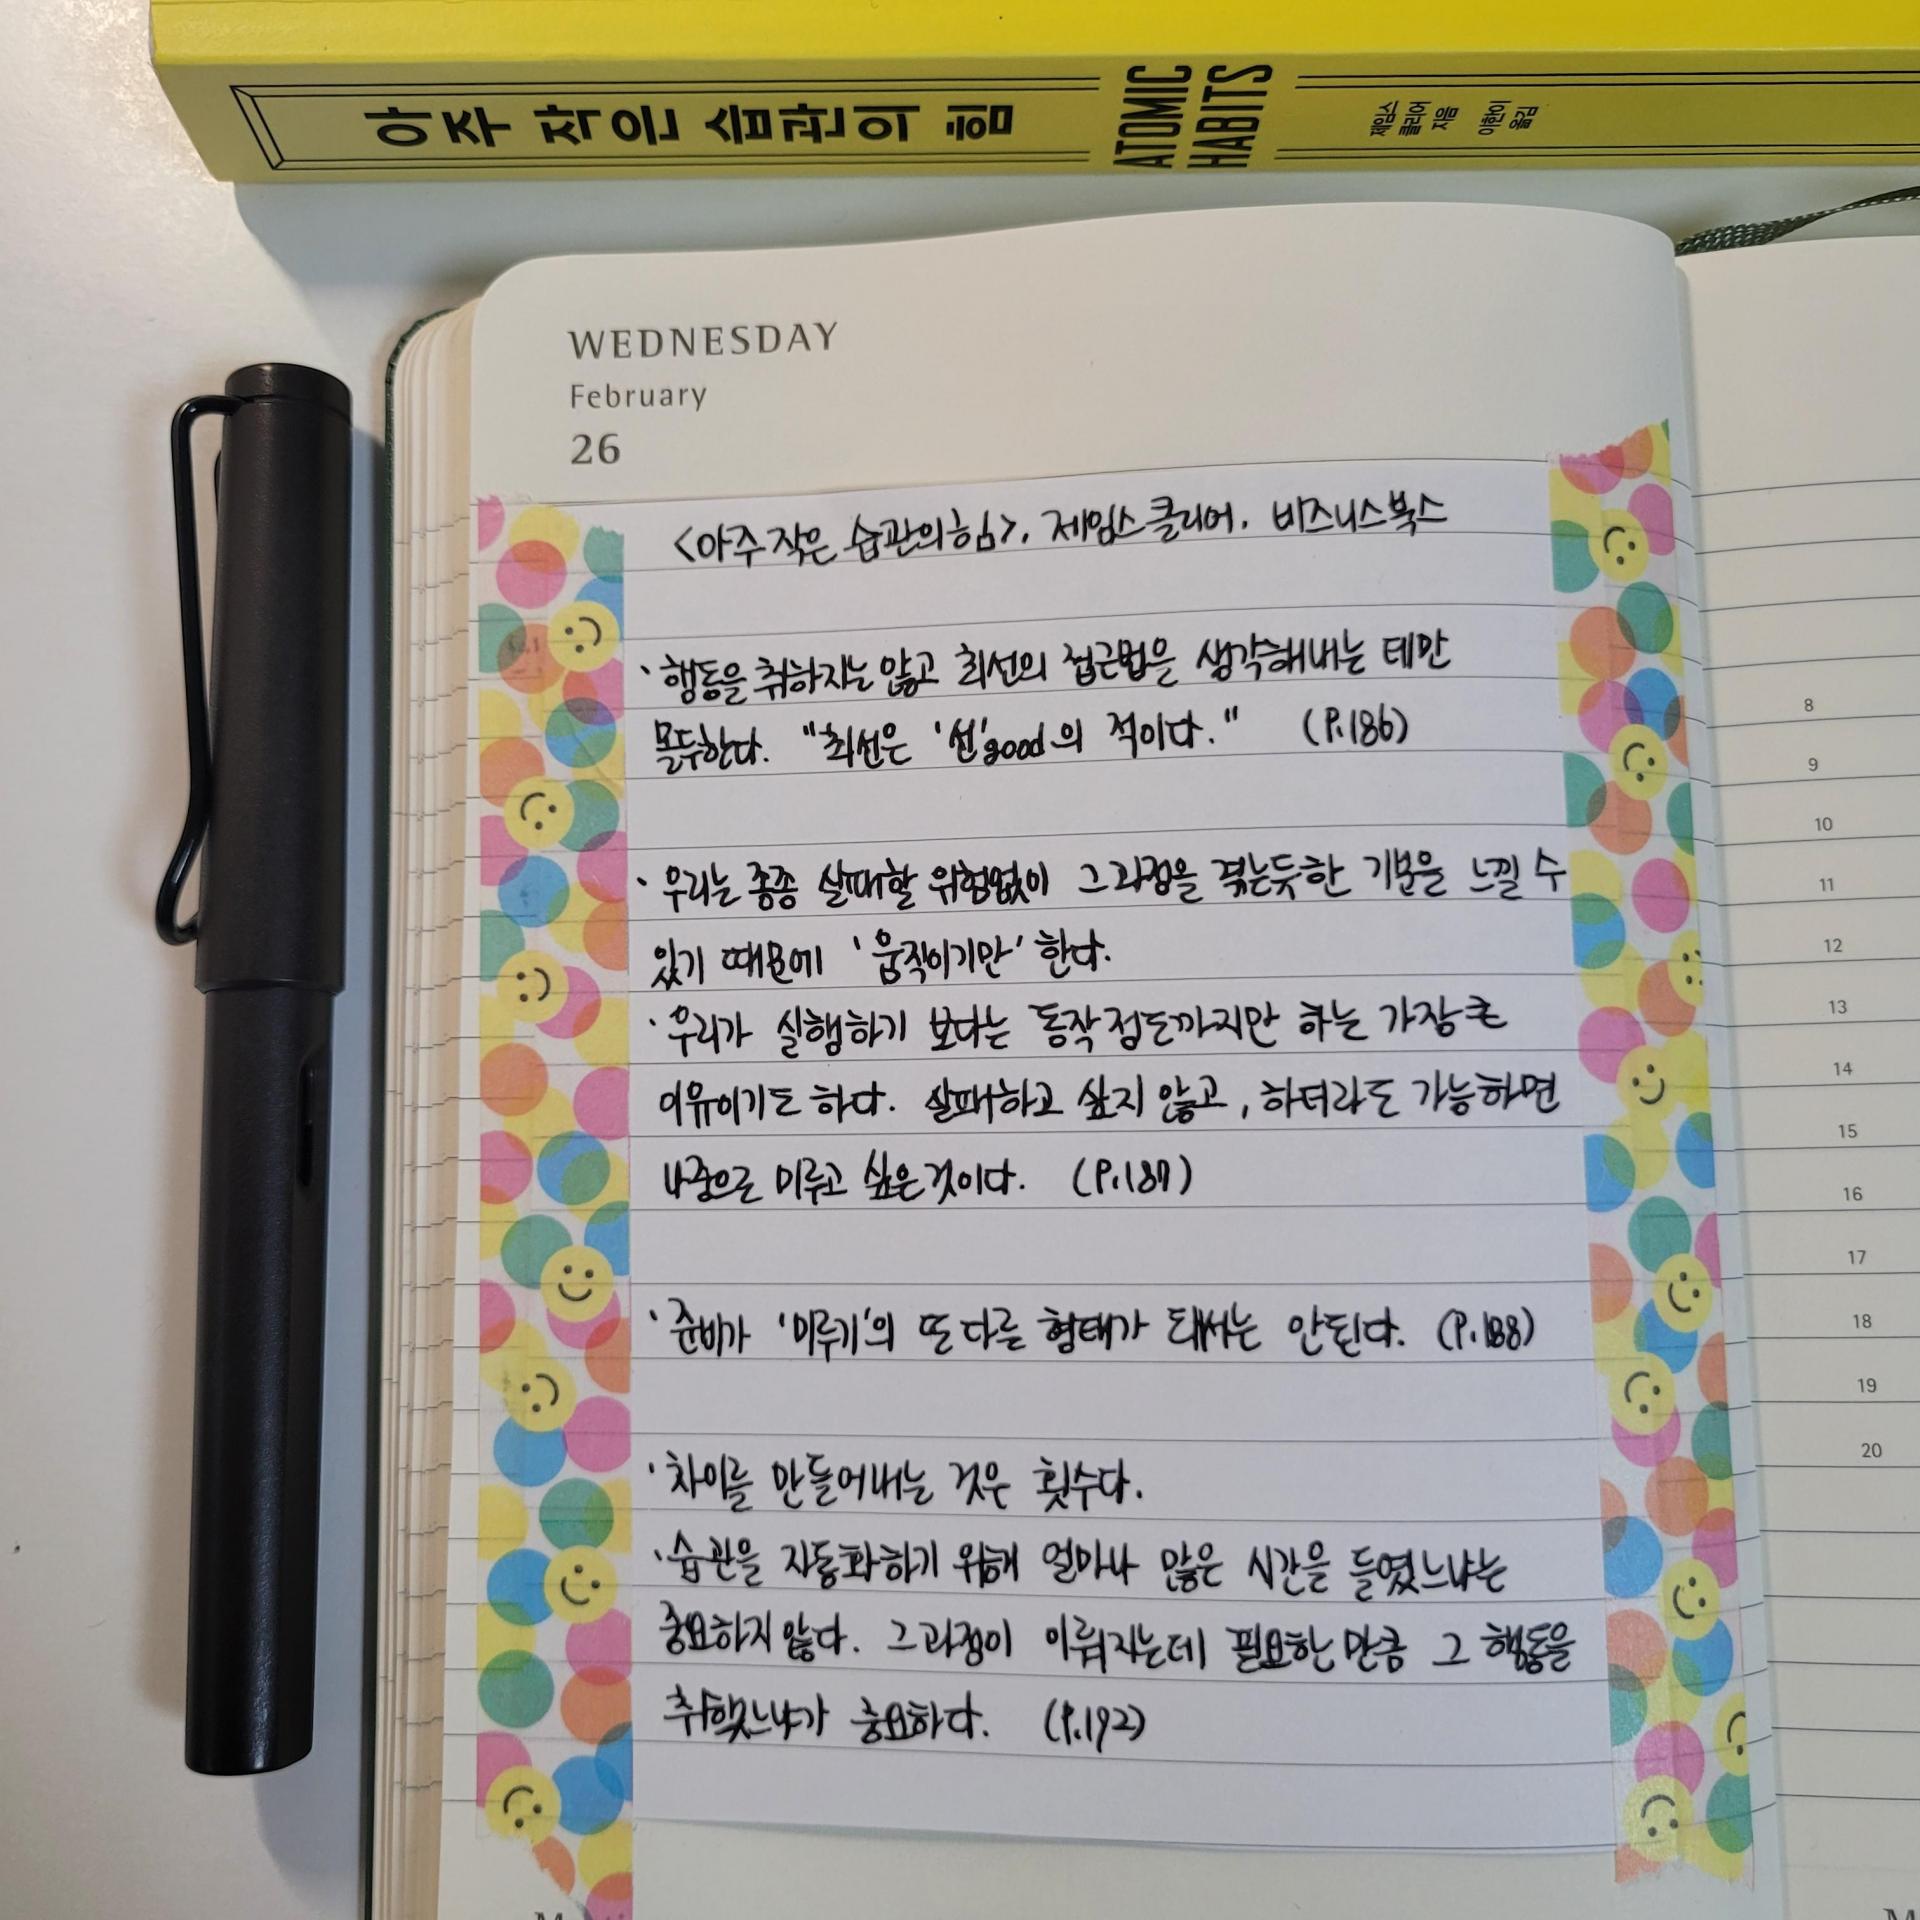 아주 작은 습관의 힘
ATOMIC
HABITS
제임스
클리어
지음
이한이
옮김
WEDNESDAY
February
26
<아주 작은 습관의 힘>, 제임스 클리어, 비즈니스북스
· 행동을 취하지는 않고 최선의 접근법을 생각해내는 데만
몰두한다. "최선은 '선'good의 적이다." (P.186)
· 우리는 종종 실패할 위험없이 그 과정을 겪는듯한 기분을 느낄 수
있기 때문에 '움직이기만' 한다.
· 우리가 실행하기 보다는 동작 정도까지만 하는 가장 큰
이유이기도 하다. 실패하고 싶지 않고, 하더라도 가능하면
나중으로 미루고 싶은 것이다. (P.187)
· 준비가 '미루기'의 또 다른 형태가 돼서는 안된다. (P.188)
· 차이를 만들어내는 것은 횟수다.
· 습관을 자동화하기 위해 얼마나 많은 시간을 들였느냐는
중요하지 않다. 그 과정이 이뤄지는데 필요한 만큼 그 행동을
취했느냐가 중요하다. (P.192)
8
9
10
11
12
13
14
15
16
17
18
19
20